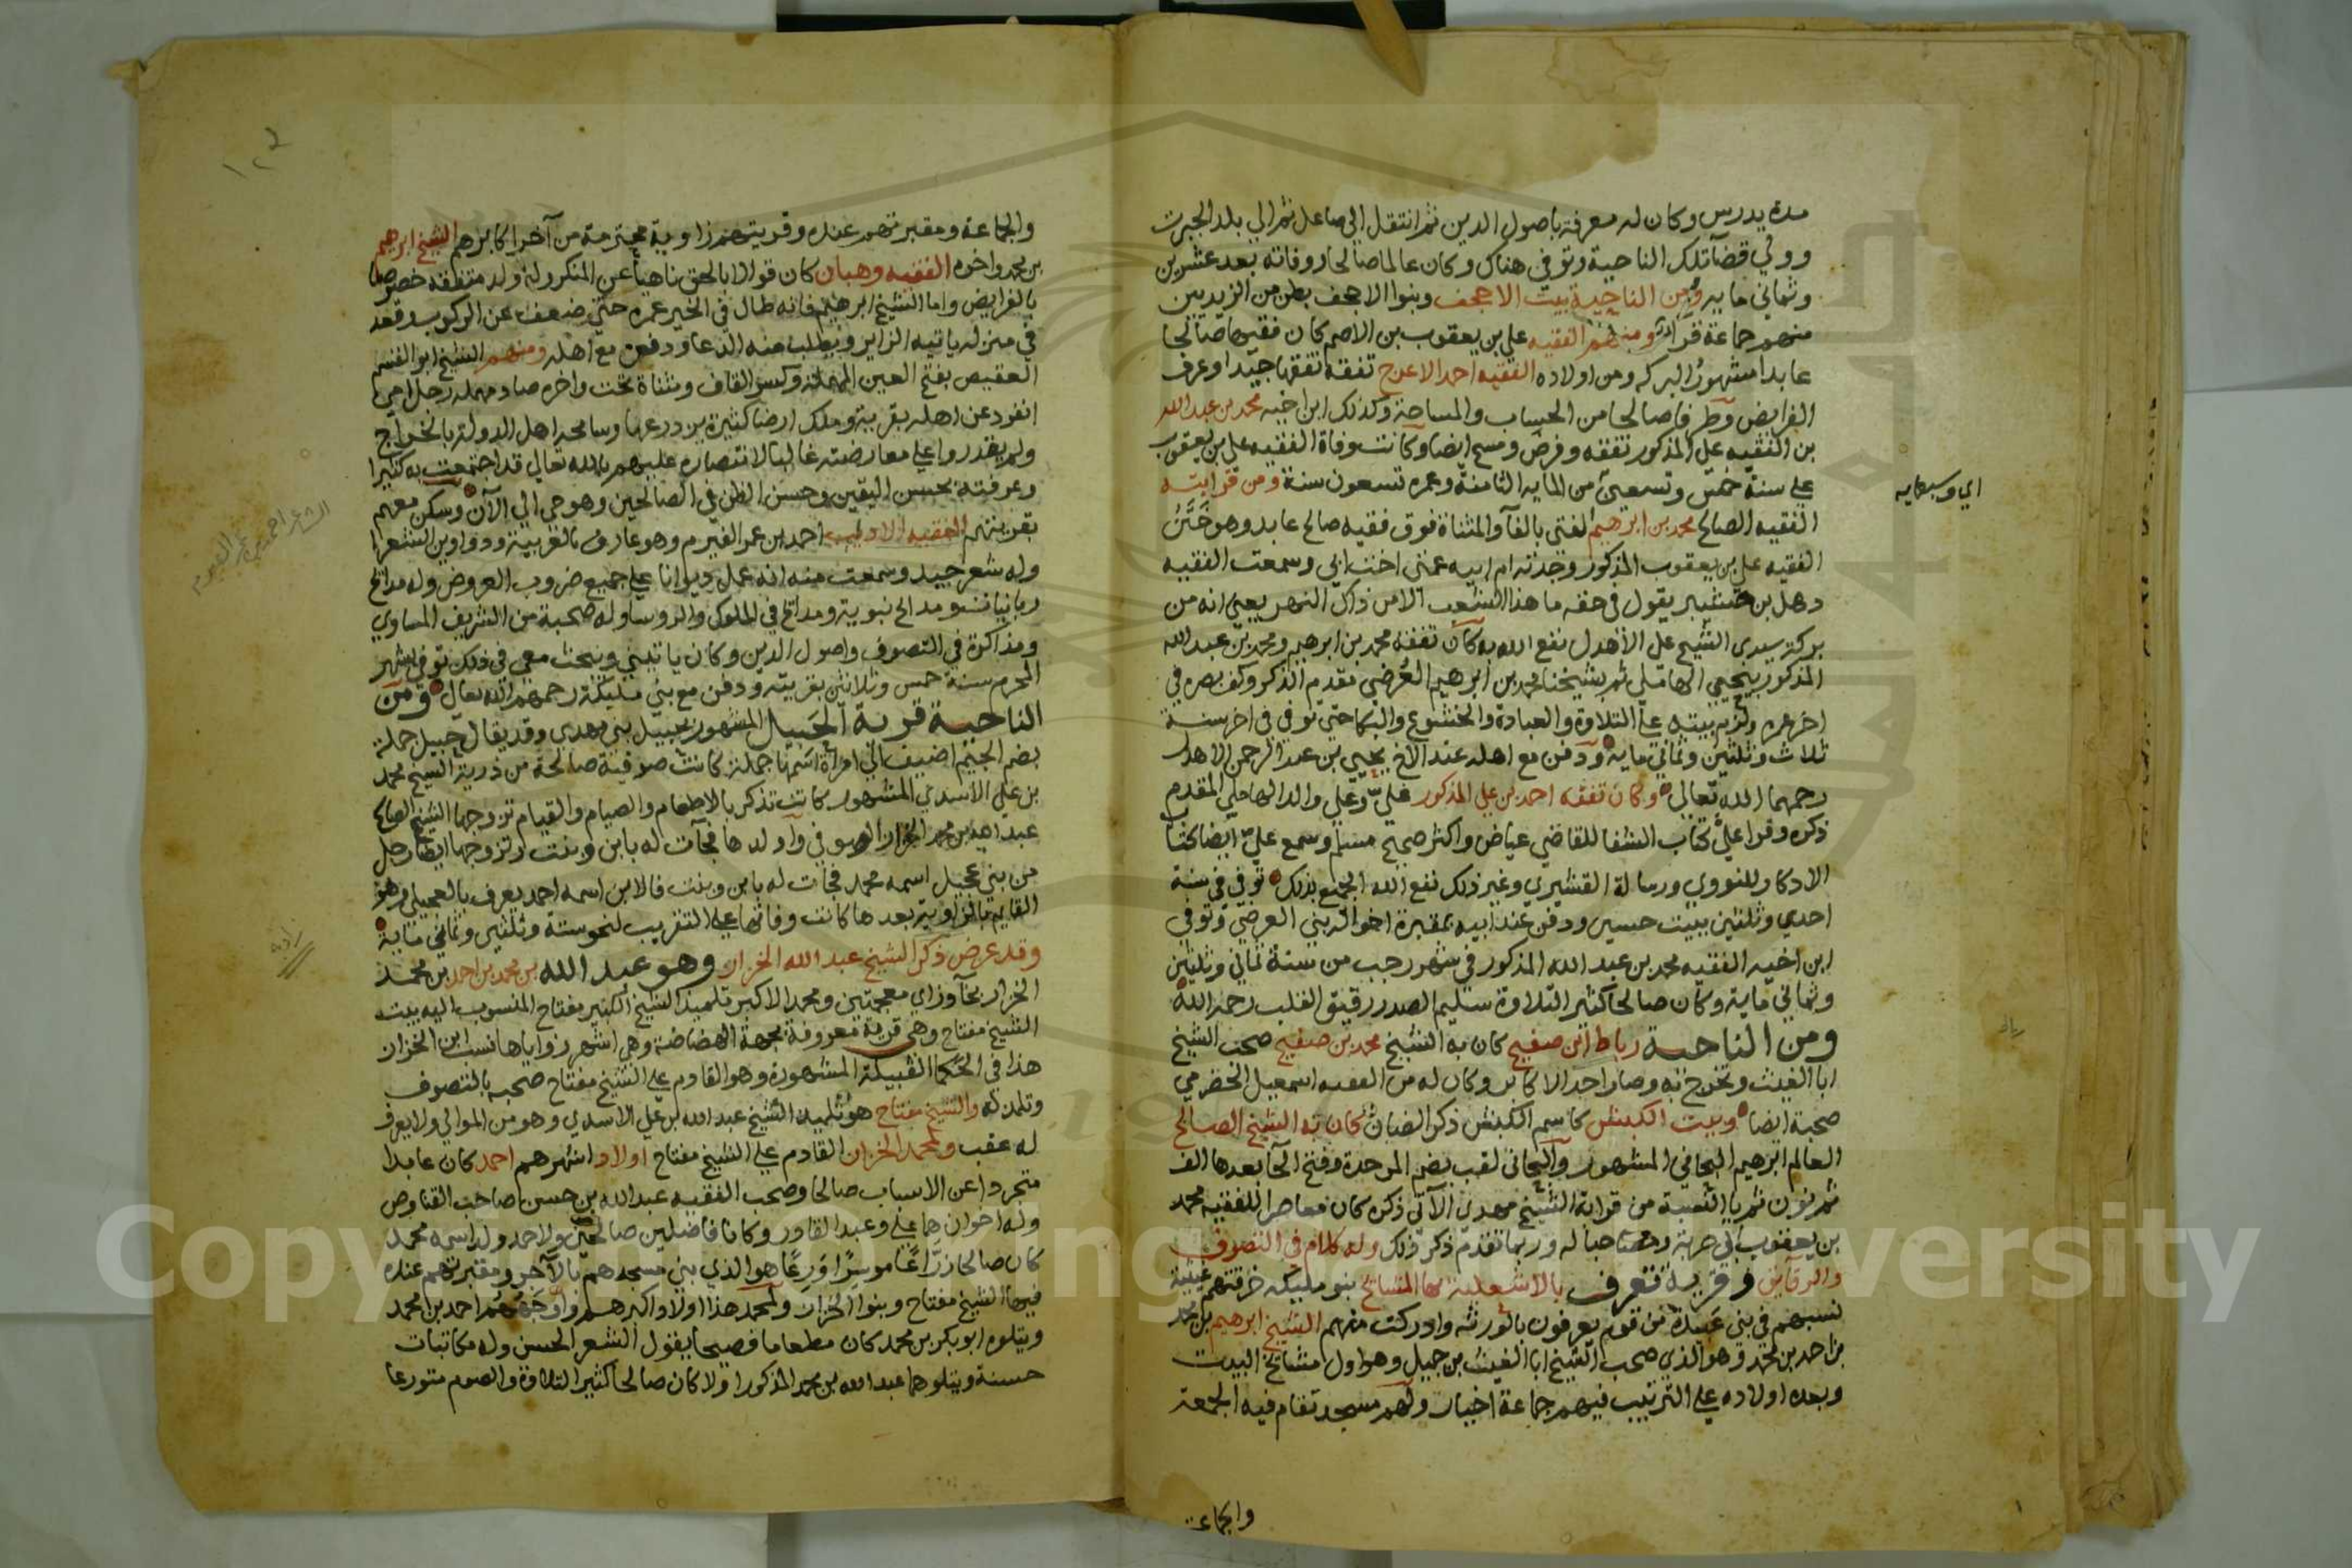 مدة يدرس وكان له معرفة باصول الدين ثم انتقل الي صاعل ثم الي بلد الجبرت
وولي قضآ تلك الناحية وتوفي هناك وكان عالما صالحا ووفاته بعد عشرين
وثماني مايه ومن الناحية بيت الاجحف وبنوا الاجحف بطن من الزيديين
منهم جماعة قرآء ومنهم الفقيه علي بن يعقوب بن الاصم كان فقيها صالحا
عابدا مشهور البركه ومن اولاده الفقيه احمد الاعرج تفقه تفقها جيدا وعرف
الفرايض وطرفا صالحا من الحساب والمساحة وكذلك ابن اخيه محمد بن عبد الله
بن الفقيه علي المذكور تفقه وفرض ومسح ايضا وكانت وفاة الفقيه علي بن يعقوب
علي سنة خمس وتسعين من المايه الثامنة وعمره تسعون سنة ومن قرابته
اي وسبعمايه
الفقيه الصالح محمد بن ابرهيم الفتى بالفآ والمثناة فوق فقيه صالح عابد وهو ختن
الفقيه علي بن يعقوب المذكور وجدته ام ابيه عمتي اخت ابي وسمعت الفقيه
دهل بن حشيبر يقول في حقه ما هذا الشعب الا من ذاك النهر يعني انه من
بركة سيدى الشيخ علي الاهدل نفع الله به كان تفقه محمد بن ابرهيم ومحمد بن عبد الله
المذكور بيحيي الهاملي ثم بشيخنا محمد بن ابرهيم العرضي مقدم الذكر وكف بصره في
اخر عمره ولزم بيته علي التلاوة والعبادة والخشوع والبكا حتي توفي في اخر سنة
ثلاث وثلثين وثماني مايه ودفن مع اهله عند الاخ يحيي بن عبد الرحمن الاهدل
رحمهما الله تعالي وكان تفقه احمد بن علي المذكور علي وعلي والد الهاملي المقدم
ذكره وقرا علي كتاب الشفا للقاضي عياض واكثر صحيح مسلم وسمع علي ايضا كتاب
الاذكار للنووي ورسالة القشيري وغير ذلك نفع الله الجميع بذلك توفي في سنة
احدي وثلثين ببيت حسين ودفن عند ابيه بمقبرة اخواله بني العرضي وتوفي
ابن اخيه الفقيه محمد بن عبد الله المذكور في شهر رجب من سنة ثماني وثلثين
وثماني ماية وكان صالحا كثير التلاوة سليم الصدر رقيق القلب رحمه الله
ومن الناحية رباط ابن صفيح كان به الشيخ محمد بن صفيح صحب الشيخ
ابا الغيث وتخرج به وصار احد الاكابر وكان له من الفقيه اسمعيل الحضرمي
صحبة ايضا وبيت الكبش كاسم الكبش ذكر الضان كان به الشيخ الصالح
العالم ابرهيم البحاني المشهور والبحاني لقب بضم الموحدة وفتح الحآ بعدها الف
ثم نون ثم يا النسبة من قرابة الشيخ مهدى الآتي ذكره كان معاصرا للفقيه محمد
بن يعقوب ابي حربة وصاحبا له وربما تقدم ذكر ذلك وله كلام في التصوف
والرقايق وقرية تعرف بالاشعلية بها المشايخ بنو مليكه خرقتهم غيثية
نسبهم في بني عبيدة من قوم يعرفون بالورثه وادركت منهم الشيخ ابرهيم بن محمد
بن احمد بن محمد وهو الذي صحب الشيخ ابا الغيث بن جميل وهو اول مشايخ البيت
وبعده اولاده علي الترتيب فيهم جماعة اخيار ولهم مسجد تقام فيه الجمعة
والجماعة
١٠٤
والجماعة ومقبرتهم عنده وقريتهم زاوية محترمة من آخر اكابرهم الشيخ ابرهيم
بن محمد واخوه الفقيه وهبان كان قوالا بالحق ناهيا عن المنكر وله ولد متفقه خصوصا
بالفرايض واما الشيخ ابرهيم فانه طال في الخير عمره حتي ضعف عن الركوب وقعد
في منزله ياتيه الزاير ويطلب منه الدعا ودفن مع اهله ومنهم الشيخ ابو القسم
العقيص بفتح العين المهملة وكسر القاف ومثناة تحت واخره صاد مهمله رجل امي
انفرد عن اهله بقرية وملك ارضا كثيرة يزدرعها وسامحه اهل الدولة بالخراج
ولم يقدروا علي معارضته غالبا لانتصاره عليهم بالله تعالي قد اجتمعت به كثيرا
وعرفته بحسن اليقين وحسن الظن في الصالحين وهو حي الي الآن وسكن معهم
بقريتهم الفقيه الاديب احمد بن عمر الفيوم وهو عارف بالعربية ودواوين الشعرا
الشاعر احمد بن عمر الفيوم
وله شعر جيد وسمعت منه انه عمل ديوانا علي جميع ضروب العروض وله مدائح
ربانيات ومدائح نبوية ومدائح في الملوك والروسا وله صحبة من الشريف المساوي
ومذاكرة في التصوف واصول الدين وكان ياتيني ويبحث معي في ذلك توفي بشهر
المحرم سنة خمس وثلاثين بقريته ودفن مع بني مليكة رحمهم الله تعالى ومن
الناحية قرية الجبيل المشهور بجبيل بني مهدى وقد يقال جبيل جملة
بضم الجيم اضيف الي امراة اسمها جملة كانت صوفية صالحة من ذرية الشيخ محمد
بن علي الاسدي المشهور كانت تذكر بالاطعام والصيام والقيام تزوجها الشيخ الصالح
عبد الله بن محمد الخزان الصوفي واولدها فجآت له بابن وبنت وتزوجها ايضا رجل
من بني عجيل اسمه محمد فجآت له بابن وبنت فالابن اسمه احمد يعرف بالعجيلي وهو
القايم بالزاوية بعدها كانت وفاتها علي التقريب لنحو ستة وثلثين وثماني ماية
وقد عرض ذكر الشيخ عبد الله الخزان وهو عبد الله بن محمد بن احمد بن محمد
الخزان بخآ وزاي معجمتين ومحمد الاكبر تلميذ الشيخ الكبير مفتاح المنسوب اليه بيت
الشيخ مفتاح وهي قرية معروفة بجهة الهضامة وهي اشهر زواياها نسب ابن الخزان
هذا في الحكما القبيلة المشهورة وهو القادم علي الشيخ مفتاح صحبه بالتصوف
وتلمذ له والشيخ مفتاح هو تلميذ الشيخ عبد الله بن علي الاسدي وهو من الموالي ولا يعرف
له عقب ولمحمد الخزان القادم علي الشيخ مفتاح اولاد اشهرهم احمد كان عابدا
متجردا عن الاسباب صالحا وصحب الفقيه عبد الله بن حسن صاحب القناوص
وله اخوان هما علي وعبد القادر وكانا فاضلين صالحين ولاحمد ولد اسمه محمد
كان صالحا زراعا موسرا ورعا هو الذي بني مسجدهم بالآجر ومقبرتهم عنده
فيها الشيخ مفتاح وبنوا الخزان ولمحمد هذا اولاد اكبرهم واوجههم احمد بن محمد
ويتلوه ابو بكر بن محمد كان مطعاما فصيحا يقول الشعر الحسن وله مكاتبات
حسنة ويتلوهما عبد الله بن محمد المذكور اولا كان صالحا كثير التلاوة والصوم متورعا
Copyright © King Saud University